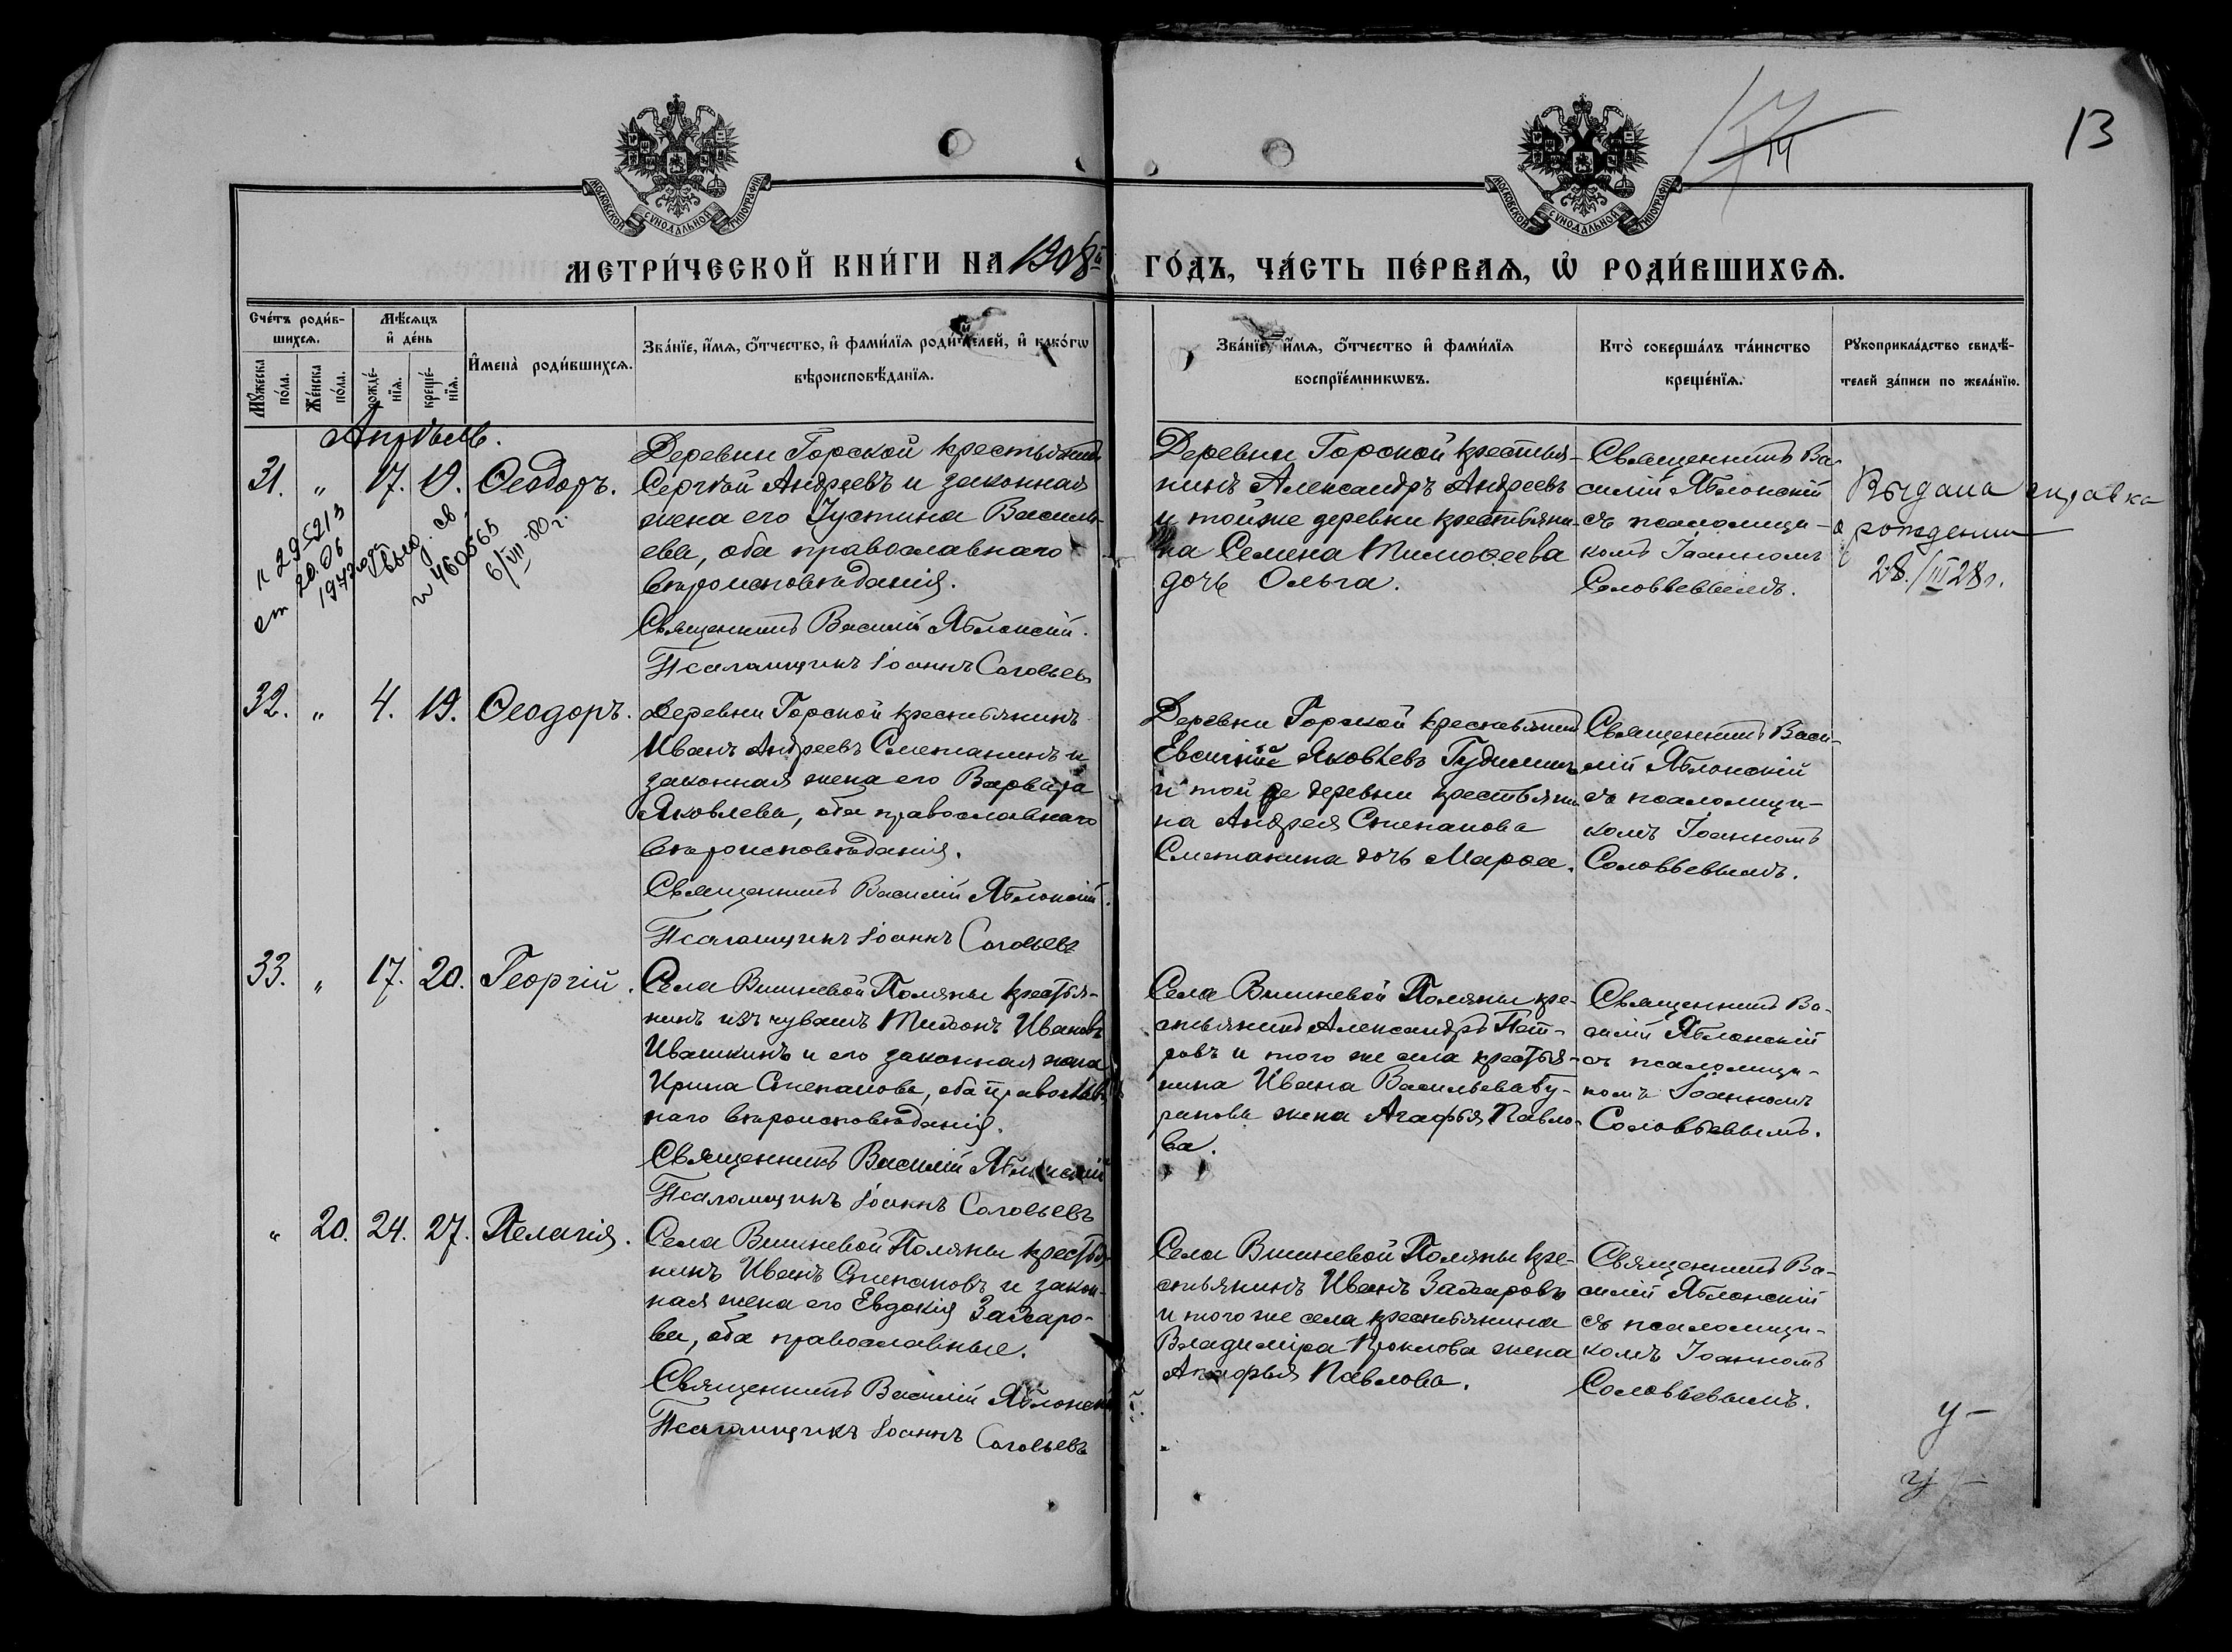 13
14
МОСКОВСКОЙ СѴНОДАЛЬНОЙ ТИПОГРАФІИ
МОСКОВСКОЙ СѴНОДАЛЬНОЙ ТИПОГРАФІИ
МЕТРИ́ЧЕСКОЙ КНИ́ГИ НА 1908й ГО́ДЪ, ЧА́СТЬ ПЕ́РВАѦ, Ѡ҆ РОДИ́ВШИХСѦ.
Сче́тъ роди́в-
шихсѧ.
Мꙋ́жеска по́ла.
Же́нска по́ла.
Мѣ́сѧцъ
и҆ де́нь
рожде́-
нїѧ.
креще́-
нїѧ.
И҆мена̀ роди́вшихсѧ.
Зва́нїе, и҆́мѧ, ѻ҆́тчество, и҆ фами́лїѧ роди́телей, и҆ како́гѡ
вѣроисповѣ́данїѧ.
Зва́нїе, и҆́мѧ, ѻ҆́тчество и҆ фами́лїѧ
воспрїе́мникѡвъ.
Кто̀ соверша́лъ та́инство
креще́нїѧ.
Рꙋкоприкла́дство свидѣ́-
телей за́писи по жела́нїю.
Апрѣль.
31. " 17. 19. Ѳеодоръ.
Деревни Горской крестьянинъ
Сергѣй Андреевъ и законная
жена его Іустина Василь-
ева, оба православнаго
вѣроисповѣданія.
Священникъ Василій Яблонскій.
Псаломщикъ Іоаннъ Соловьевъ
Деревни Горской крестья-
нинъ Александръ Андреевъ
и тойже деревни крестьяни-
на Семена Тимоѳеева
дочь Ольга.
Священникъ Ва-
силій Яблонскій
съ псаломщи-
комъ Іоанномъ
Соловьевымъ.
Выдана справка
о рождении
28./III 28г.
n 295213
от 20.06
1947года
Выд. св.
n 460565
6/VII-80г.
32. " 4. 19. Ѳеодоръ.
Деревни Горской крестьянинъ
Иванъ Андреевъ Сметанинъ и
законная жена его Варвара
Яковлева, оба православнаго
вѣроисповѣданія.
Священникъ Василій Яблонскій.
Псаломщикъ Іоаннъ Соловьевъ
Деревни Горской крестьянинъ
Яковлевъ
и той же деревни крестьяни-
на Андрея Степанова
Сметанина дочь Марѳа.
Священникъ Васи-
лій Яблонскій
съ псаломщи-
комъ Іоанномъ
Соловьевымъ.
33. " 17. 20. Георгій.
Села Вишневой Поляны крестья-
нинъ изъ чувашъ Тихонъ Ивановъ
Ивашкинъ и его законная жена
Ирина Степанова, оба православ-
наго вѣроисповѣданія.
Священникъ Василій Яблонскій
Псаломщикъ Іоаннъ Соловьевъ
Села Вишневой Поляны кре-
стьянинъ Александръ Пет-
ровъ и того же села крестья-
нина Ивана Васильева Бу-
ранова жена Агафья Павло-
ва.
Священникъ Ва-
силій Яблонскій
съ псаломщи-
комъ Іоанномъ
Соловьевымъ.
" 20. 24. 27. Пелагія.
Села Вишневой Поляны крестья-
нинъ Иванъ Степановъ и закон-
ная жена его Евдокія Захаро-
ва, оба православные.
Священникъ Василій Яблонскій
Псаломщикъ Іоаннъ Соловьевъ
Села Вишневой Поляны кре-
стьянинъ Иванъ Захаровъ
и того же села крестьянина
Владиміра Проклова жена
Агафья Павлова.
Священникъ Ва-
силій Яблонскій
съ псаломщи-
комъ Іоанномъ
Соловьевымъ.
у-
у-